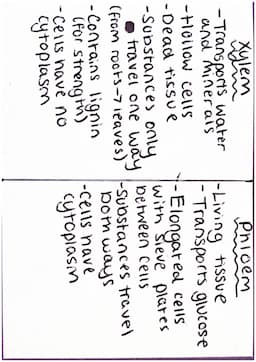 Xylem
- Transports water
and minerals
- Hollow cells
- Dead tissue
- Substances only
travel one way
(from roots → leaves)
- Contains lignin
(for strength)
- Cells have no
cytoplasm
Phloem
- Living tissue
- Transports glucose
- Elongated cells
with sieve plates
between cells
- Substances travel
both ways
- Cells have
cytoplasm